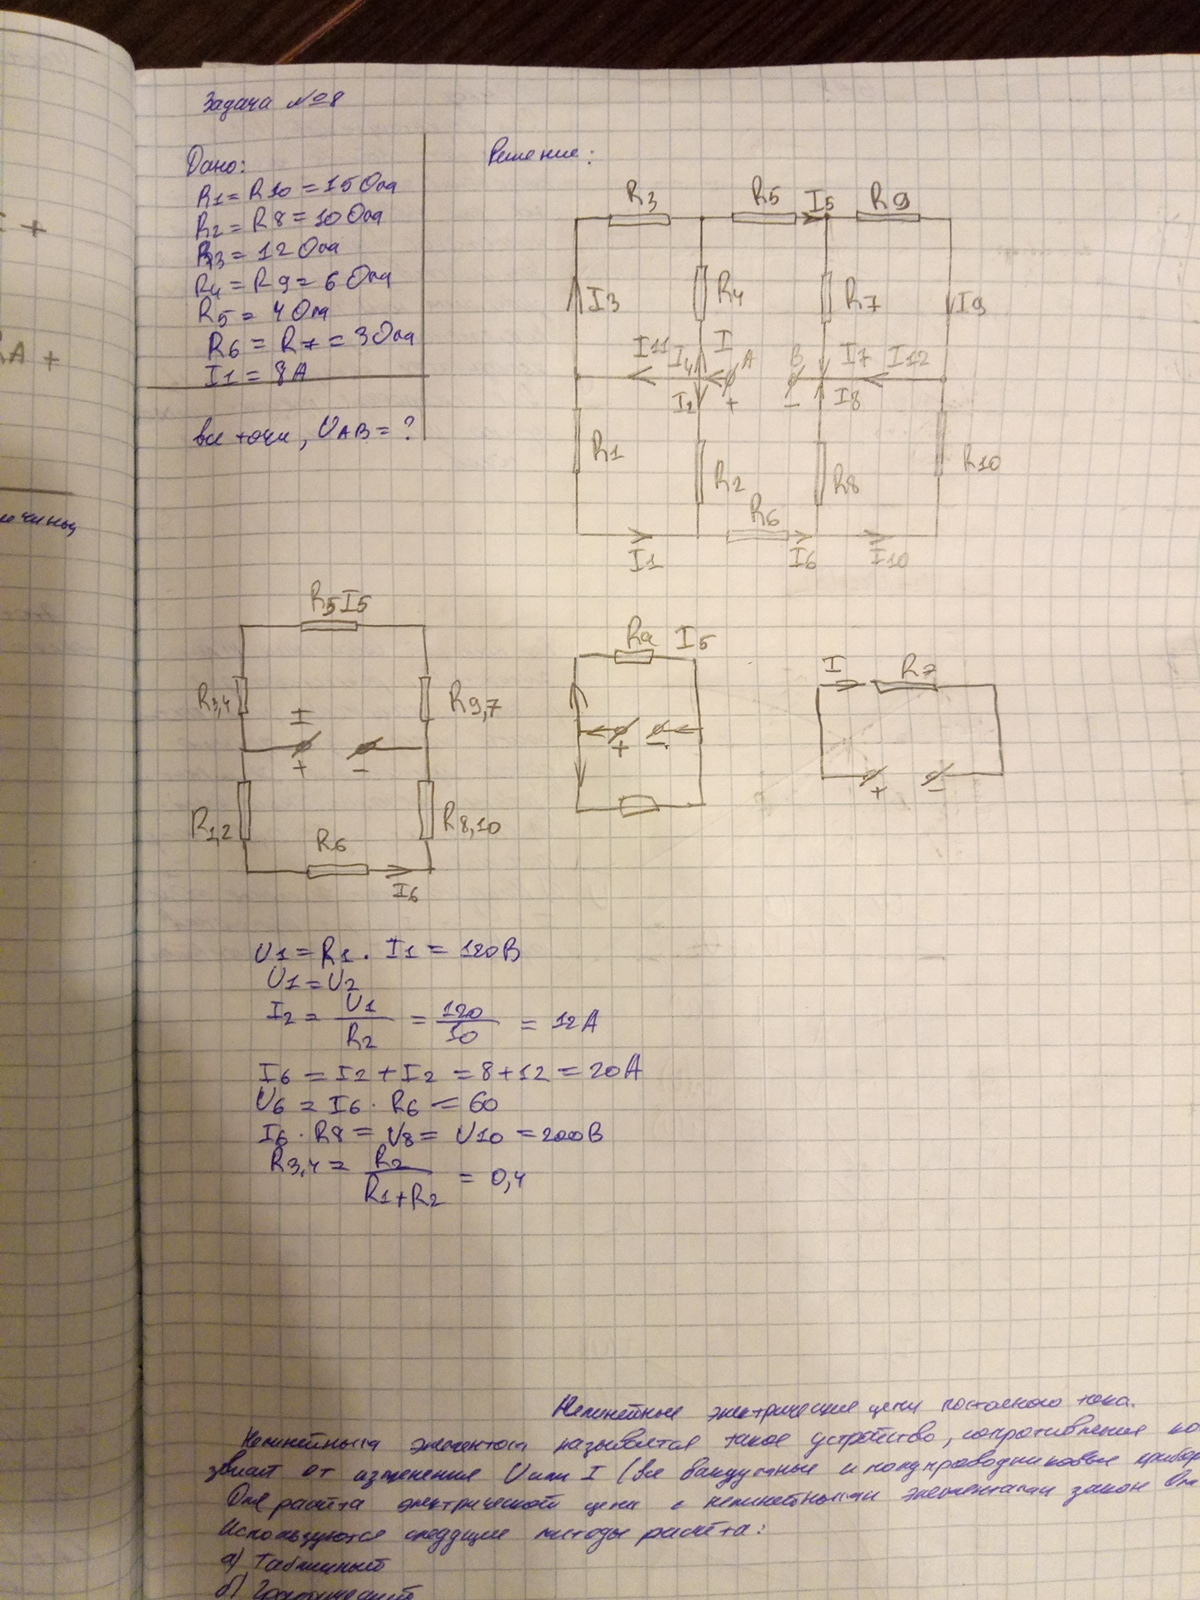 Задача №8
Дано:
Решение:
R1 = R10 = 15 Ом
R2 = R8 = 10 Ом
R3 = 12 Ом
R4 = R9 = 6 Ом
R5 = 4 Ом
R6 = R7 = 3 Ом
I1 = 8А
все токи, UAB = ?
R3 R5 I5 R9
I3 R4 R7 I9
I11 I4 I A B I7 I12
I2 + - I8
R1 R2 R8 R10
R6
I1 I6 I10
R5 I5
R3,4 R9,7
I
+ -
R1,2 R8,10
R6
I6
Ra I5
+ -
I R7
+ -
U1 = R1 · I1 = 120В
U1 = U2
I2 = U1/R2 = 120/10 = 12А
I6 = I2 + I2 = 8 + 12 = 20А
U6 = I6 · R6 = 60
I6 · R8 = U8 = U10 = 200В
R3,4 = R2/R1+R2 = 0,4
Нелинейные электрические цепи постоянного тока.
Нелинейным элементом называется такое устройство, сопротивление
от изменения U или I (все вакуумные и полупроводниковые
Для расчёта электрической цепи с нелинейными элементами закон
Используются следущие методы расчёта:
а) Табличный
б) Графический